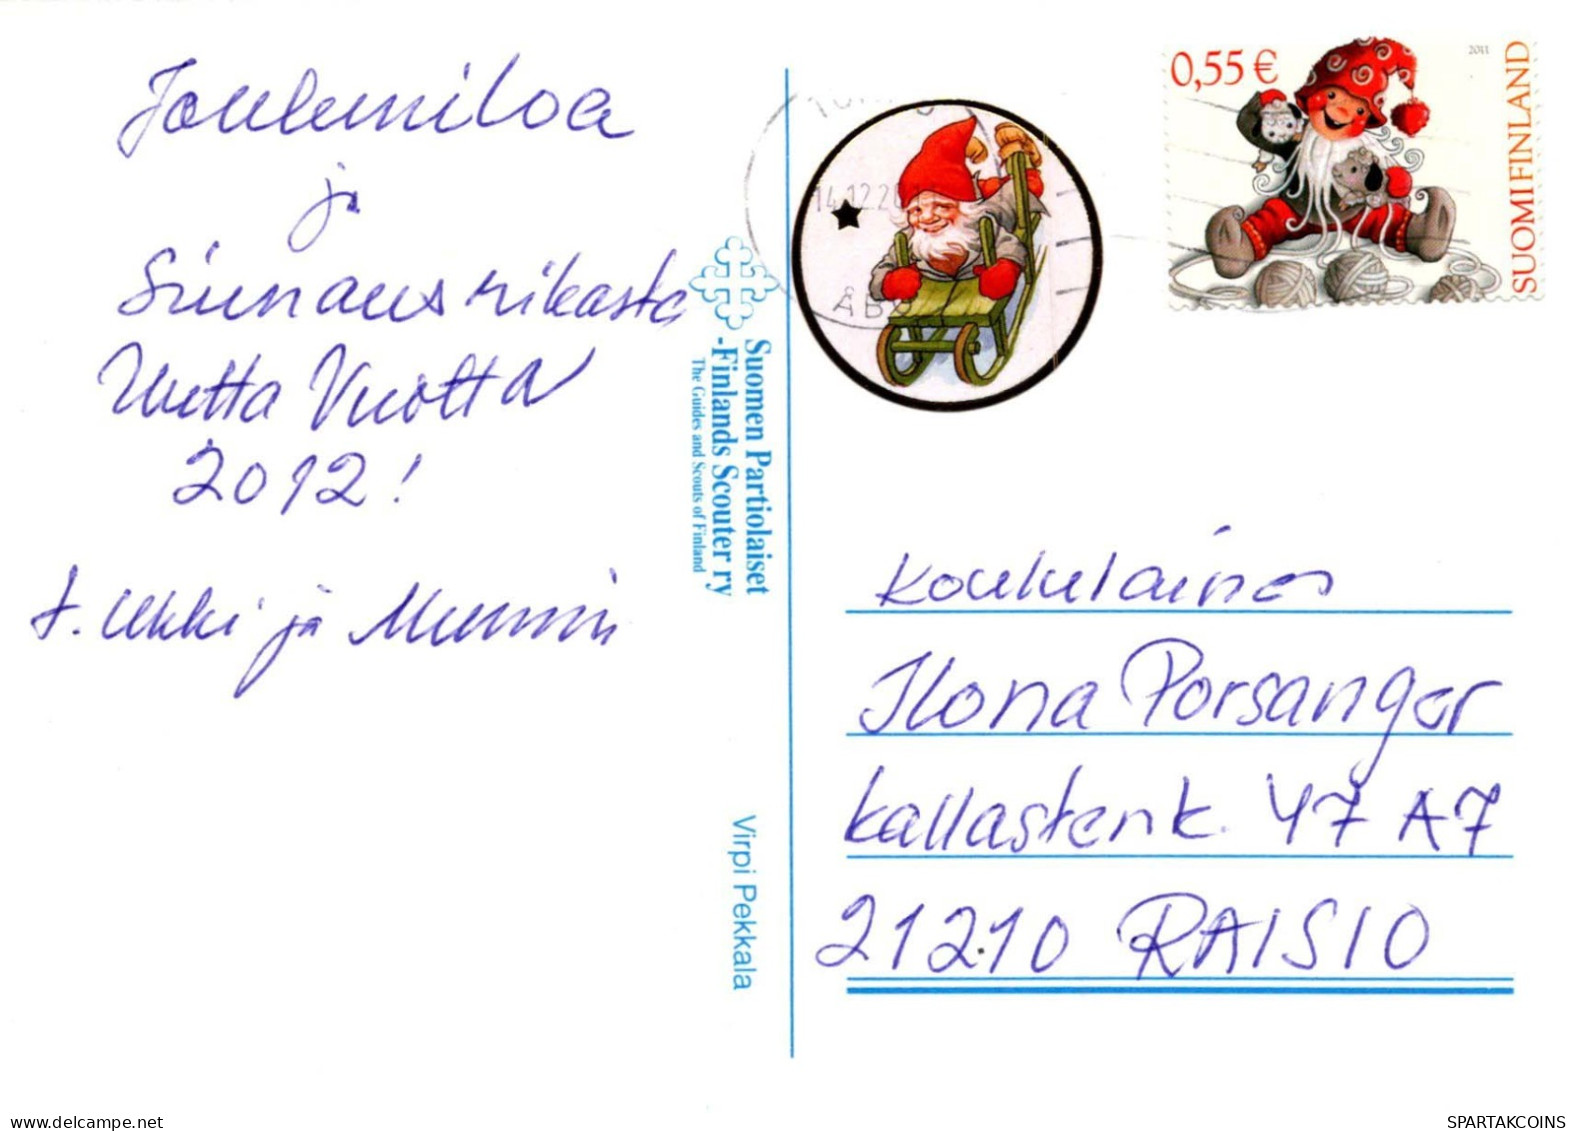 Jouluniloa
ja
Siunausrikasta
Uutta Vuotta
2012!
t. Ukki ja Mummi
Suomen Partiolaiset
-Finlands Scouter ry
The Guides and Scouts of Finland
Virpi Pekkala
14.12.20
ÅBO
0,55 €
2011
SUOMI FINLAND
Koululainen
Ilona Porsanger
Kallastenk. 47 A7
21210 RAISIO
delcampe.net
SPARTAKCOINS